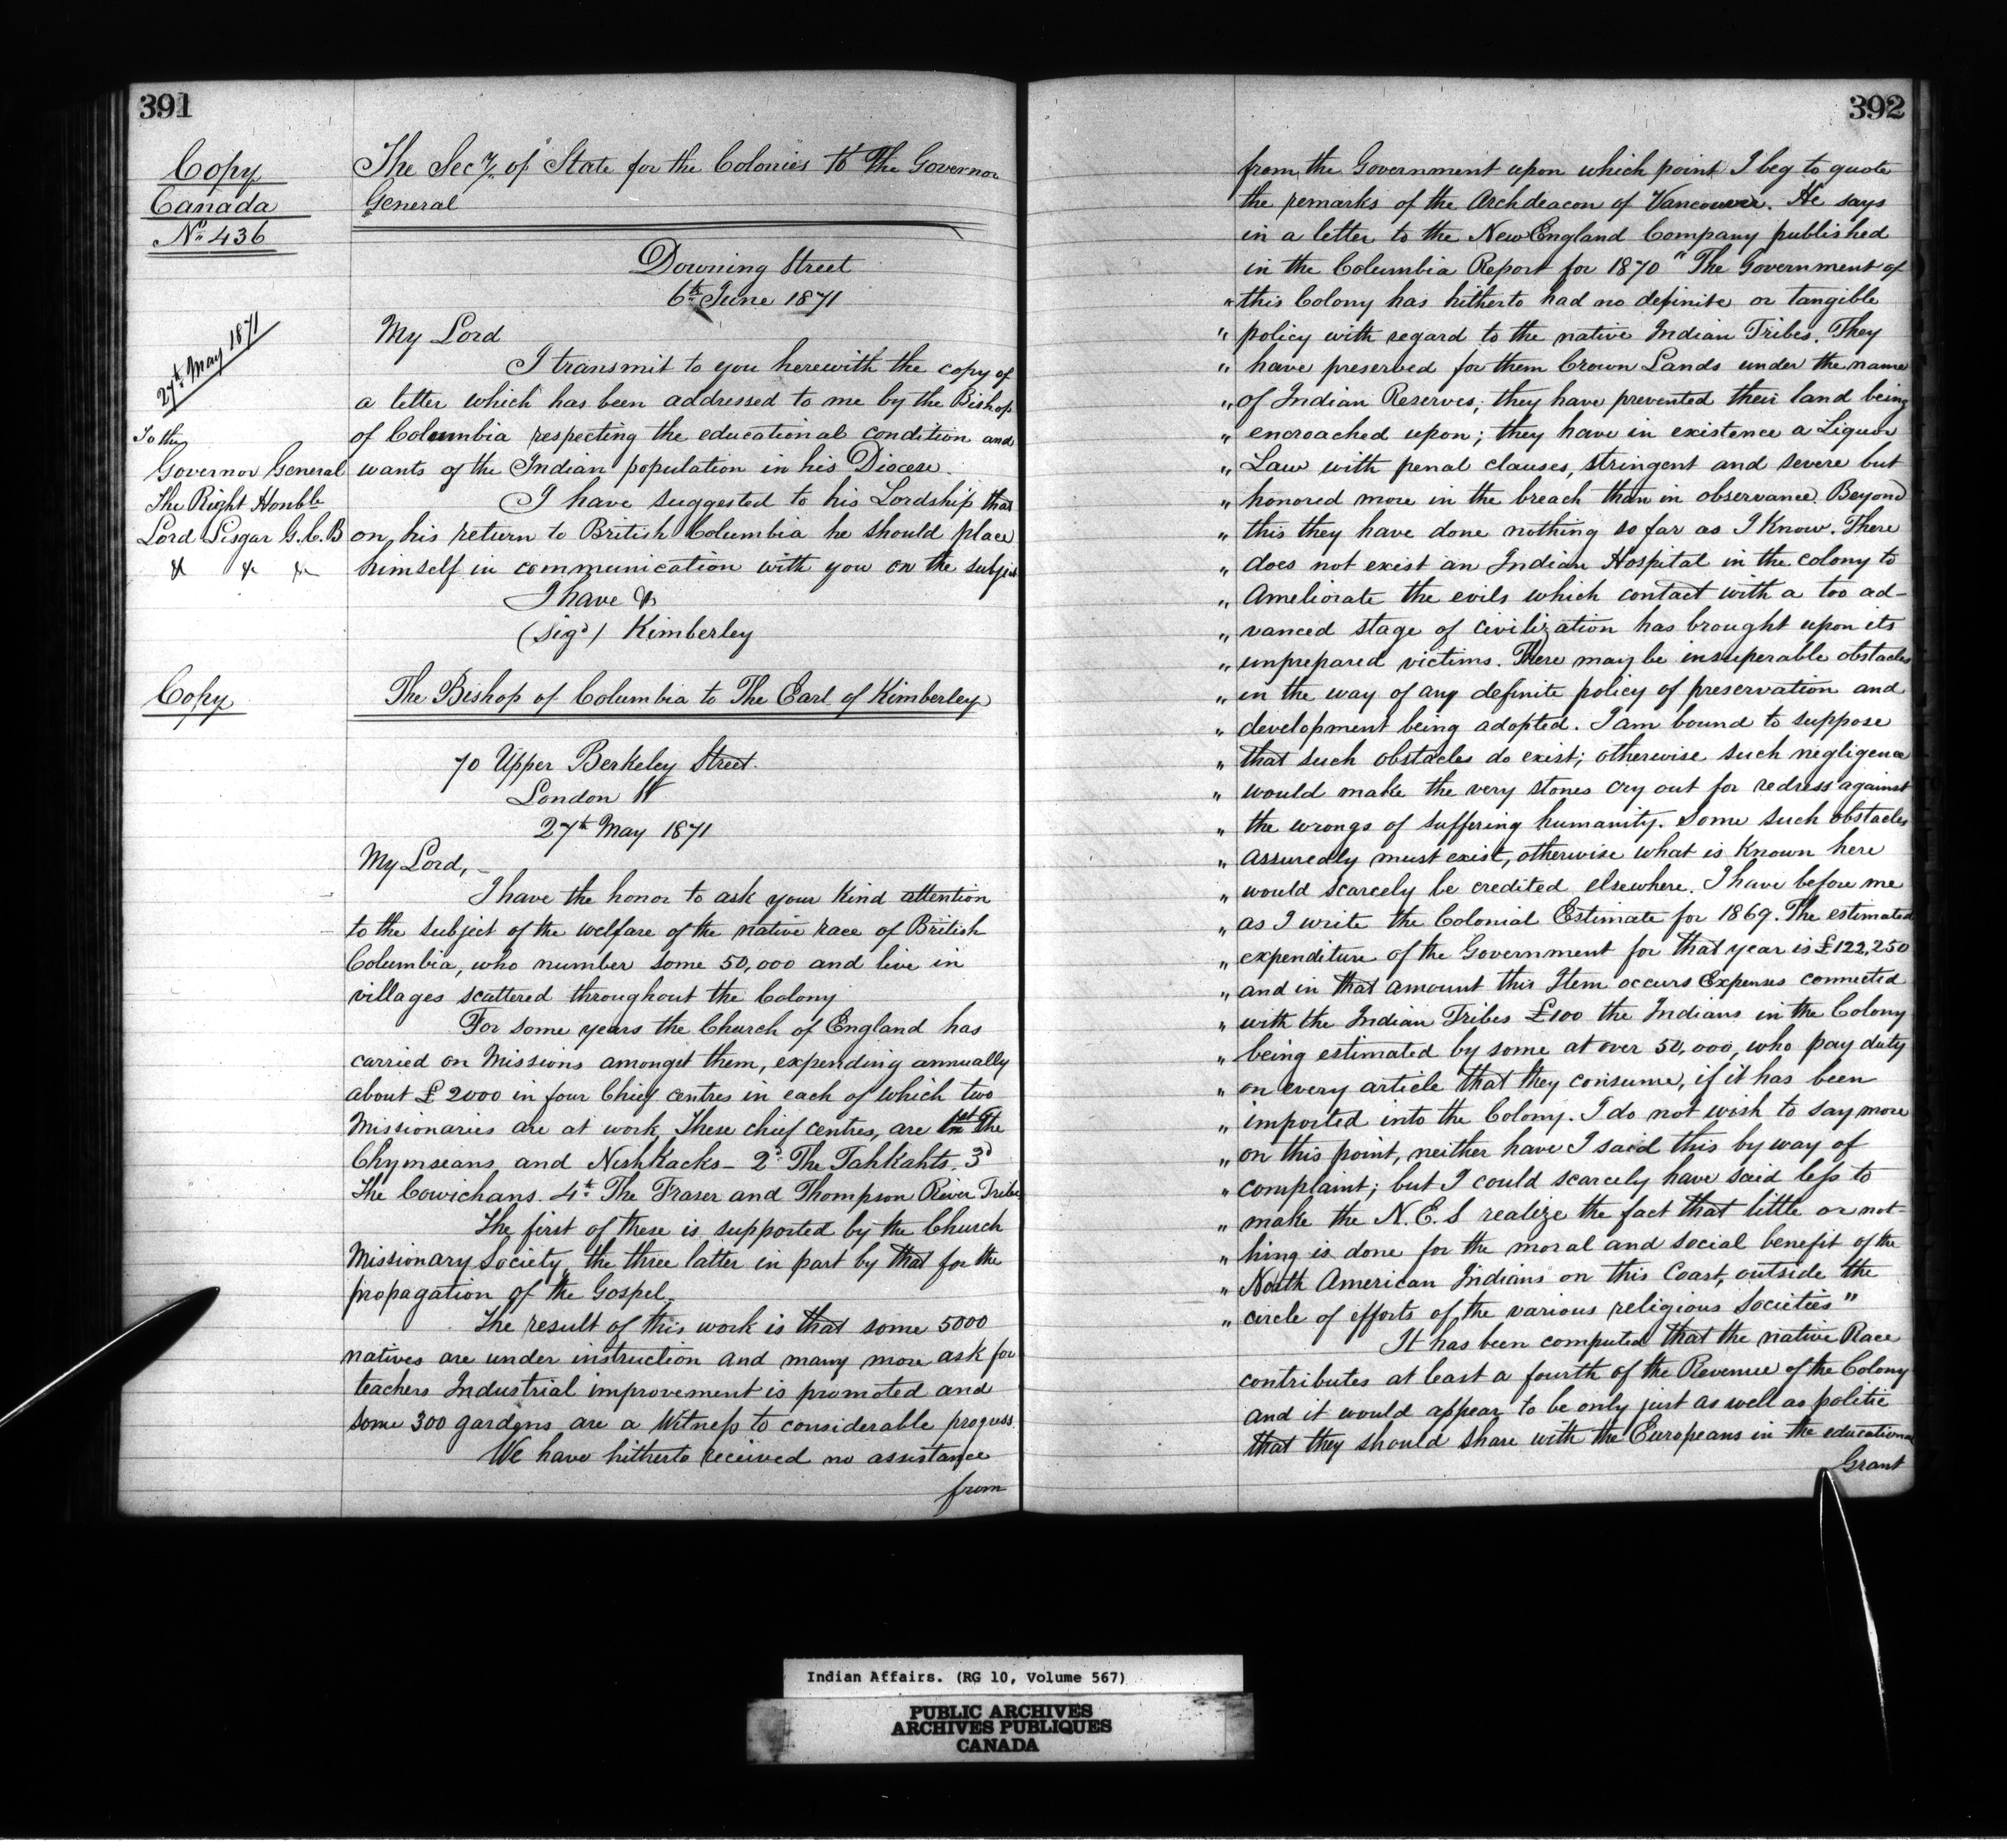 391
Copy
Canada
No. 436
27th May 1871
To the
Governor General
The Right Honble
Lord Lisgar G.C.B
& & &
The Secy. of State for the Colonies to The Governor
General
Downing Street
6th June 1871
My Lord
I transmit to you herewith the copy of
a letter which has been addressed to me by the Bishop
of Columbia respecting the educational condition and
wants of the Indian population in his Diocese.
I have suggested to his Lordship that
on his return to British Columbia he should place
himself in communication with you on the subject
I have &c
(Sigd) Kimberley
Copy
The Bishop of Columbia to The Earl of Kimberley
70 Upper Berkeley Street.
London W
27th May 1871
My Lord,
I have the honor to ask your kind attention
to the subject of the welfare of the native race of British
Columbia, who number some 50,000 and live in
villages scattered throughout the Colony
For some years the Church of England has
carried on Missions amongst them, expending annually
about £2000 in four Chief centres in each of which two
Missionaries are at work These chief centres, are 1st The
Chymseans and Nishkacks - 2d The Tahkahts. 3d
The Cowichans. 4th The Fraser and Thompson River Tribes
The first of these is supported by the Church
Missionary Society, the three latter in part by that for the
propagation of the Gospel.
The result of this work is that some 5000
natives are under instruction and many more ask for
teachers Industrial improvement is promoted and
some 300 gardens are a Witness to considerable progress
We have hitherto received no assistance
from
392
from the Government upon which point I beg to quote
the remarks of the Archdeacon of Vancouver. He says
in a letter to the New England Company published
in the Columbia Report for 1870 "The Government of
" this Colony has hitherto had no definite or tangible
" policy with regard to the native Indian Tribes. They
" have preserved for them Crown Lands under the name
" of Indian Reserves; they have prevented their land being
" encroached upon; they have in existence a Liquor
" Law with penal clauses, stringent and severe but
" honored more in the breach than in observance. Beyond
" this they have done nothing so far as I know. There
" does not exist an Indian Hospital in the colony to
" Ameliorate the evils which contact with a too ad-
" vanced stage of civilization has brought upon its
" unprepared victims. There may be insuperable obstacles
" in the way of any definite policy of preservation and
" development being adopted. I am bound to suppose
" that such obstacles do exist; otherwise such negligence
" would make the very stones cry out for redress against
" the wrongs of suffering humanity. Some such obstacles
" assuredly must exist, otherwise what is known here
" would scarcely be credited elsewhere. I have before me
" as I write the Colonial Estimate for 1869. The estimated
" expenditure of the Government for that year is £122,250
" and in that amount this Item occurs Expenses connected
" with the Indian Tribes £100 the Indians in the Colony
" being estimated by some at over 50,000, who pay duty
" on every article that they consume, if it has been
" imported into the Colony. I do not wish to say more
" on this point, neither have I said this by way of
" complaint; but I could scarcely have said less to
" make the N.E.S realize the fact that little or not-
" hing is done for the moral and social benefit of the
" North American Indians on this Coast, outside the
" circle of efforts of the various religious Societies"
It has been computed that the native Race
contributes at least a fourth of the Revenue of the Colony
and it would appear to be only just as well as politic
that they should share with the Europeans in the educational
Grant
Indian Affairs. (RG 10, Volume 567)
PUBLIC ARCHIVES
ARCHIVES PUBLIQUES
CANADA